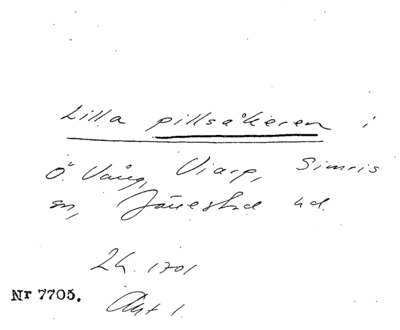 Lilla pillsåkeren i
Ö. Vång, Viarp, Simris
sn, Järrestad hd.
2h. 1701
Akt 1.
Nr 7705.